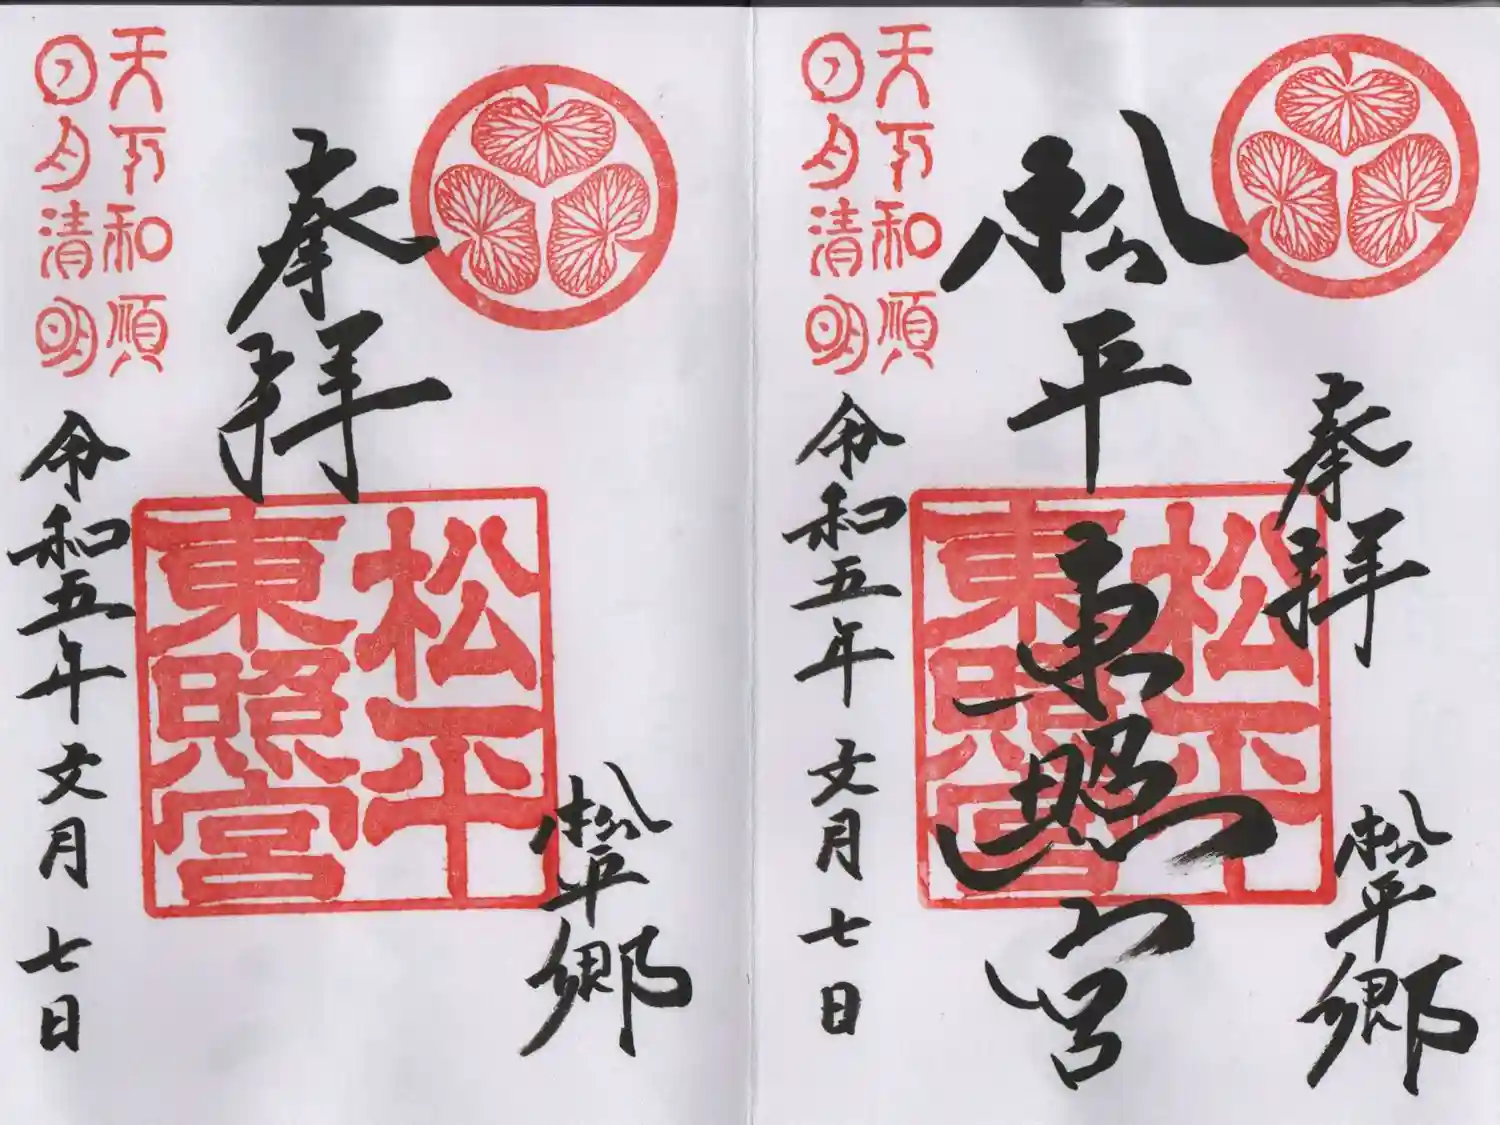 天下和順
日月清明
奉拝
松平
東照宮
松平郷
令和五年文月七日
天下和順
日月清明
奉拝
松平東照宮
松平
東照宮
松平郷
令和五年文月七日